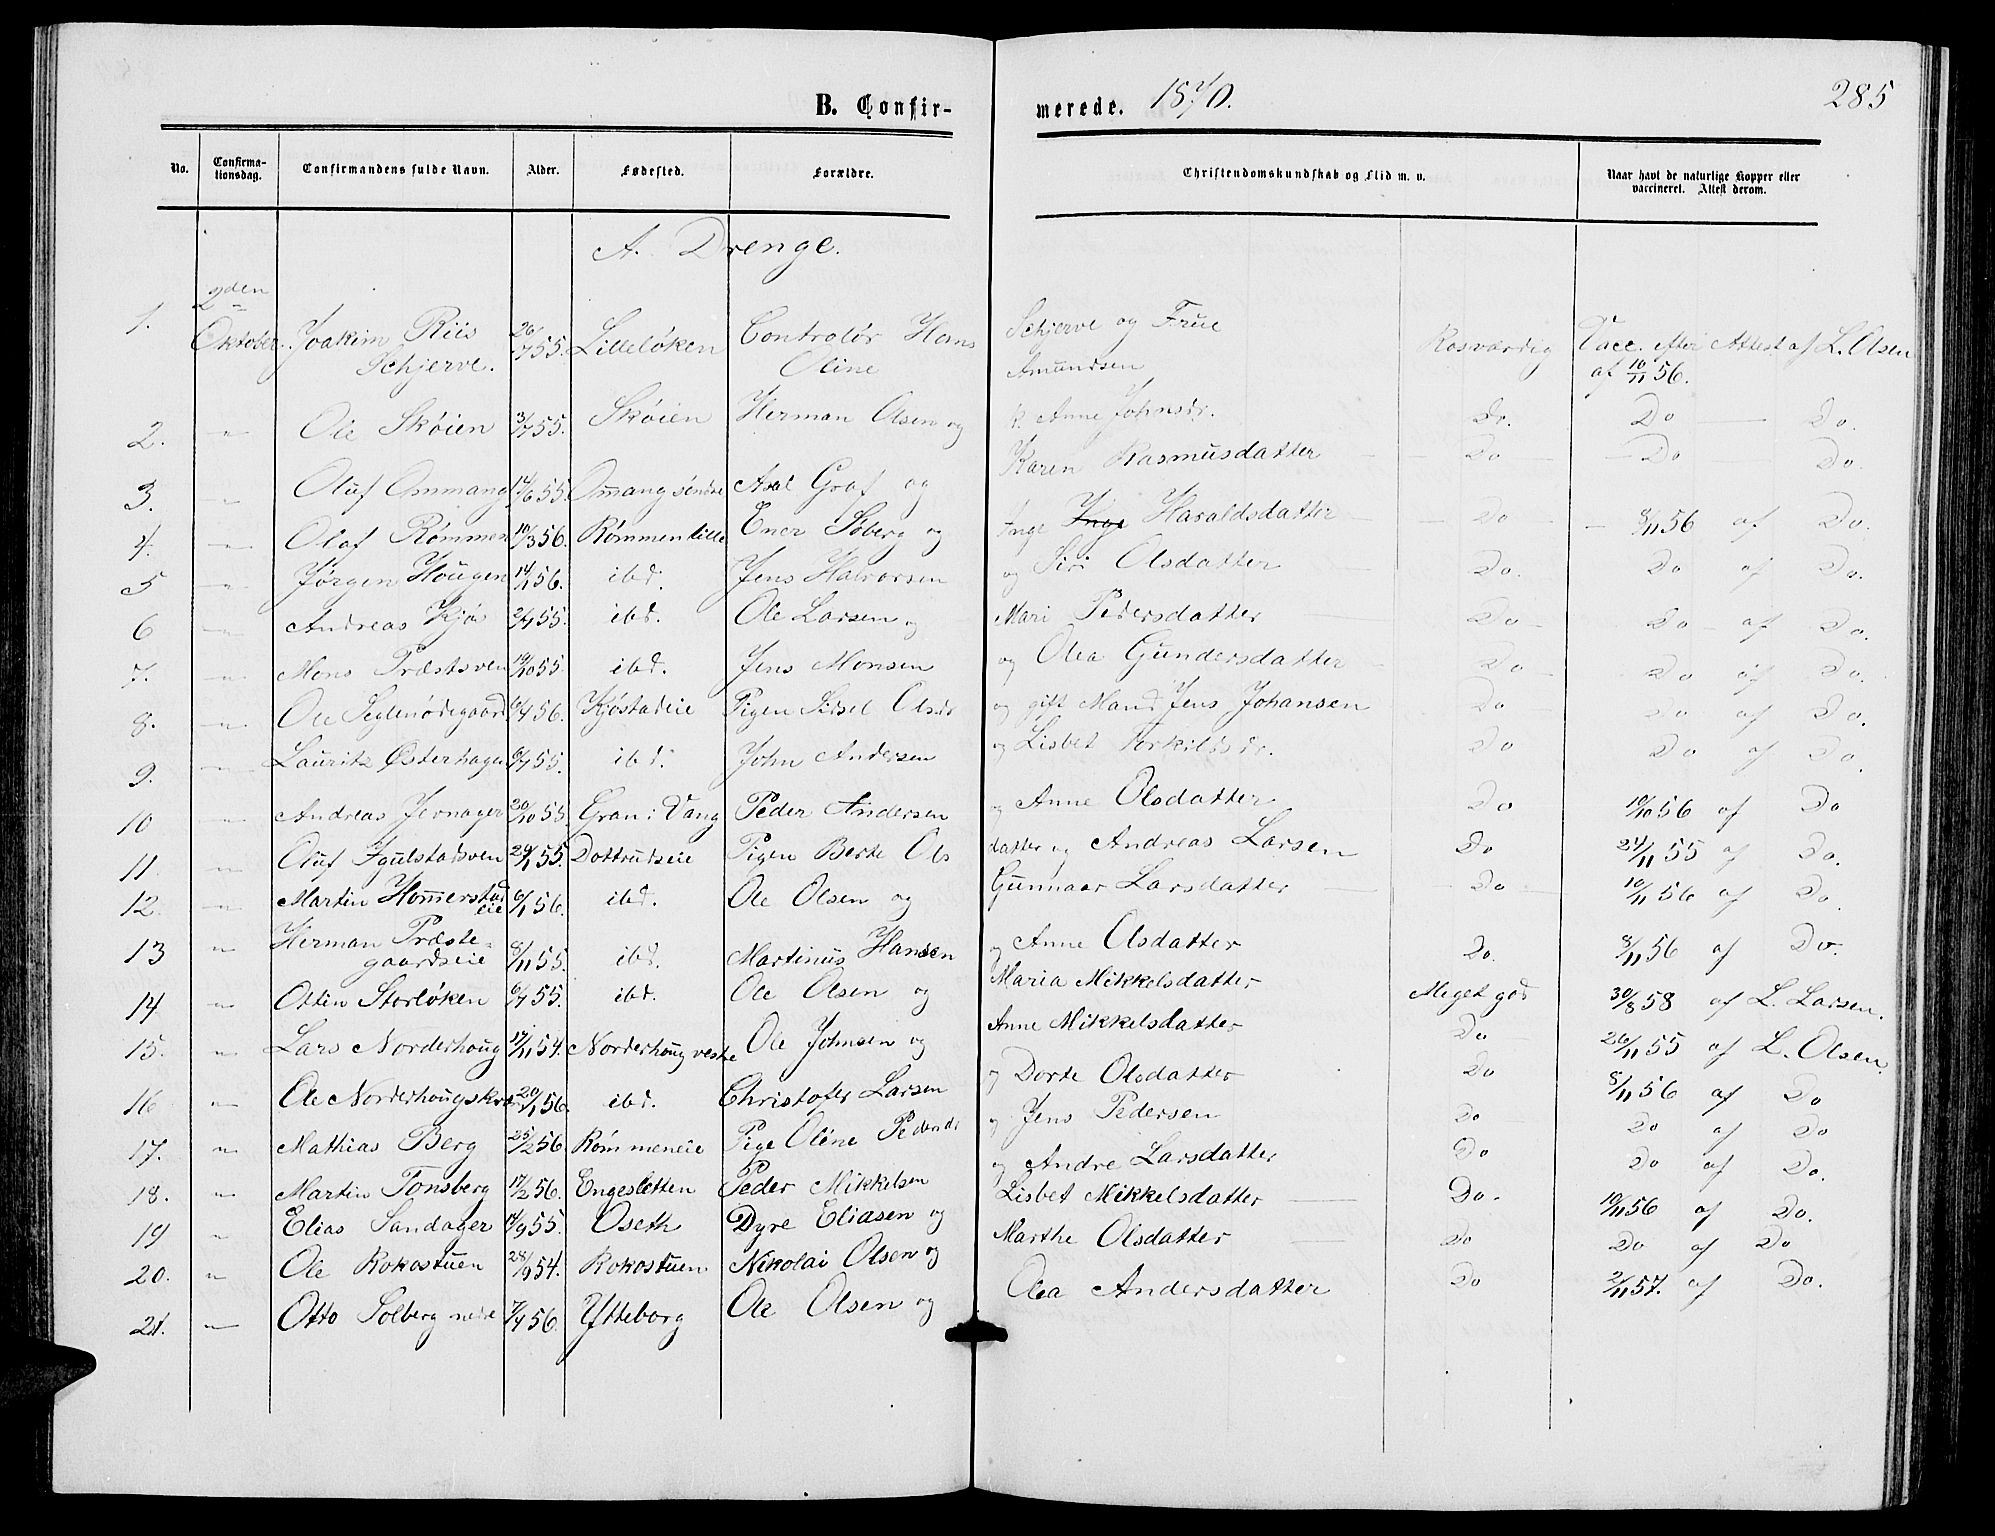 B. Confir- merede. 1870. 285
No. Confirma- Confirmandens fulde Navn. Alder. Fødested. Forældre. Christendomskundskab og Flid m. v. Naar havt de naturlige Kopper eller
tionsdag. vaccineret. Attest derom.
A. Drenge.
2den
1. Oktober. Joakim Riis 26/7 55. Lilleløken Controlør Hans Schjerve og Frue Rosværdig Vacc. efter Attest af L. Olsen
Schjerve. Oline Amundsen af 10/11 56.
2. " Ole Skøien 3/7 55. Skøien Herman Olsen og k. Anne Johnsdr. Do. Do — Do.
3. " Oluf Ommang 14/6 55. Ommang søndre Axel Graf og Karen Rasmusdatter — Do — Do Do.
4. " Olaf Rømmen 10/3 56. Rømmen lille Ener Soberg og Inge Inge Haraldsdatter — Do — 8/11 56 af Do.
5 " Jørgen Hougen 14/1 56. ibd. Jens Halvorsen og Siri Olsdatter Do. Do af Do.
6 " Andreas Kjøs 2/4 55. ibd. Ole Larsen og Mari Pedersdatter Do Do af Do.
7. " Mons Præstsven 19/10 55. ibd. Jens Monsen og Olea Gundersdatter Do Do af Do.
8. " Ole Seglenødegaard 6/4 56. Kjøstadeie Pigen Sidsel Olsdr og gift Mand Jens Johansen Do Do af Do.
9. " Lauritz Østerhagen 6/4 55. ibd. John Andersen og Lisbet Torkildsdr. Do Do af Do.
10 " Andreas Jernager 20/10 55. Gran i Vang Peder Andersen og Anne Olsdatter Do 10/10 56 af Do
11. " Oluf Igulstadsven 29/1 55. Dottrudseie Pigen Berte Ols datter og Andreas Larsen Do 24/11 55 af Do.
12. " Martin Hommerstad 6/1 56. ibd. Ole Olsen og Gunnaar Larsdatter — Do — 10/11 56 af Do.
eie
13 " Herman Præste- 8/11 55. ibd. Martinus Hansen og Anne Olsdatter Do. 8/11 56 af Do.
gaardseie
14 " Otten Storløken 6/7 55. ibd. Ole Olsen og Maria Mikkelsdatter Meget god 30/8 58 af L. Larsen.
15. " Lars Norderhoug 17/11 54. Norderhoug vestre Ole Johnsen og Anne Mikkelsdatter Do 26/11 55 af L. Olsen.
16 " Ole Norderhougskr 20/1 56. ibd. Christofer Larsen og Dorte Olsdatter Do 8/11 56 af Do
17. " Mathias Berg 25/2 56 Rømmeneie Pige Oline Pedersdr og Jens Pedersen Do Do af Do
18. " Martin Tonsberg 17/2 56. Engesletten Peder Mikkelsen og Andre Larsdatter Do Do af Do.
19 " Elias Sandager 14/9 55. Oseth Dyre Eliasen og Lisbet Mikkelsdatter — Do. 10/11 56 af Do.
20. " Ole Rokostuen 28/9 54. Rokostuen Nikolai Olsen og Marthe Olsdatter — Do Do af Do
21. " Otto Solberg nedre 7/4 56. Ytteborg Ole Olsen og Olea Andersdatter Do 2/11 57. af Do.